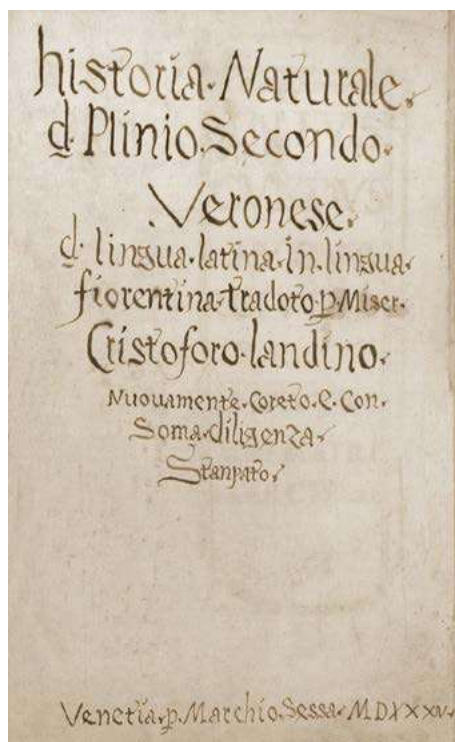 historia·Naturale·
d· Plinio·Secondo·
Veronese·
d· lingua·latina·in·lingua·
fiorentina·tradoto·p·Miser·
Cristoforo·landino·
Nuovamente·Coreto·e·Con·
Soma·diligenza·
Stanpato·
Venetia·p·Marchio·Sessa·MDXXXIV·